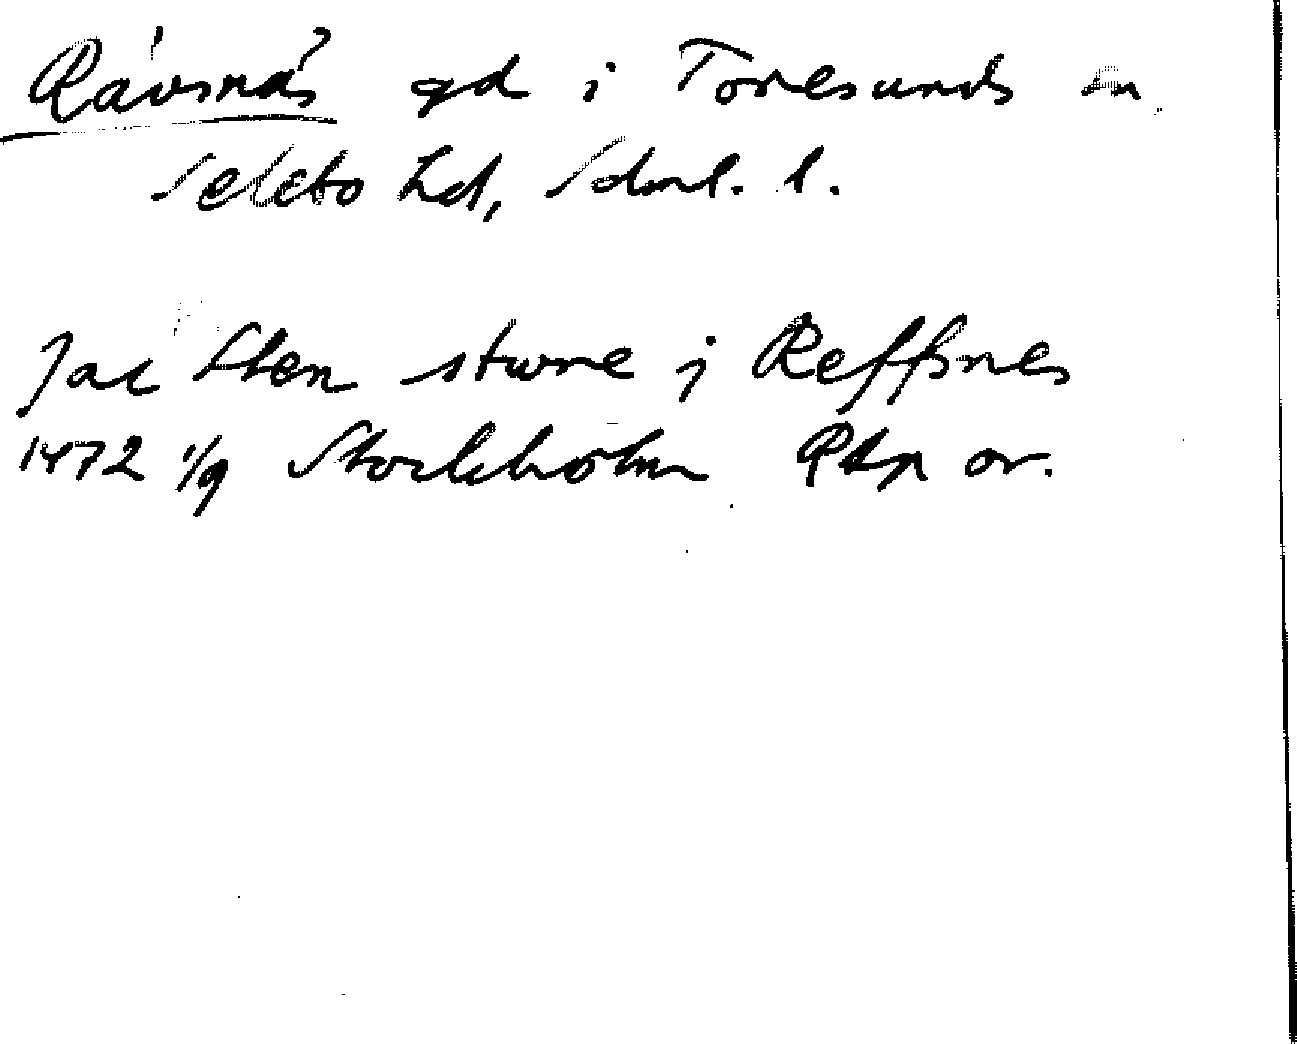 Rävsnäs gd i Toresunds sn
Selebo hd, Sdml. l.
Jac Sten sture j Reffsnes
1472 1/9 Stockholm RAp or.